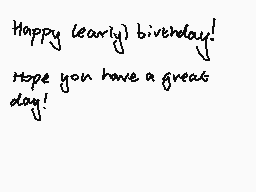 Happy (early) birthday!
Hope you have a great
day!